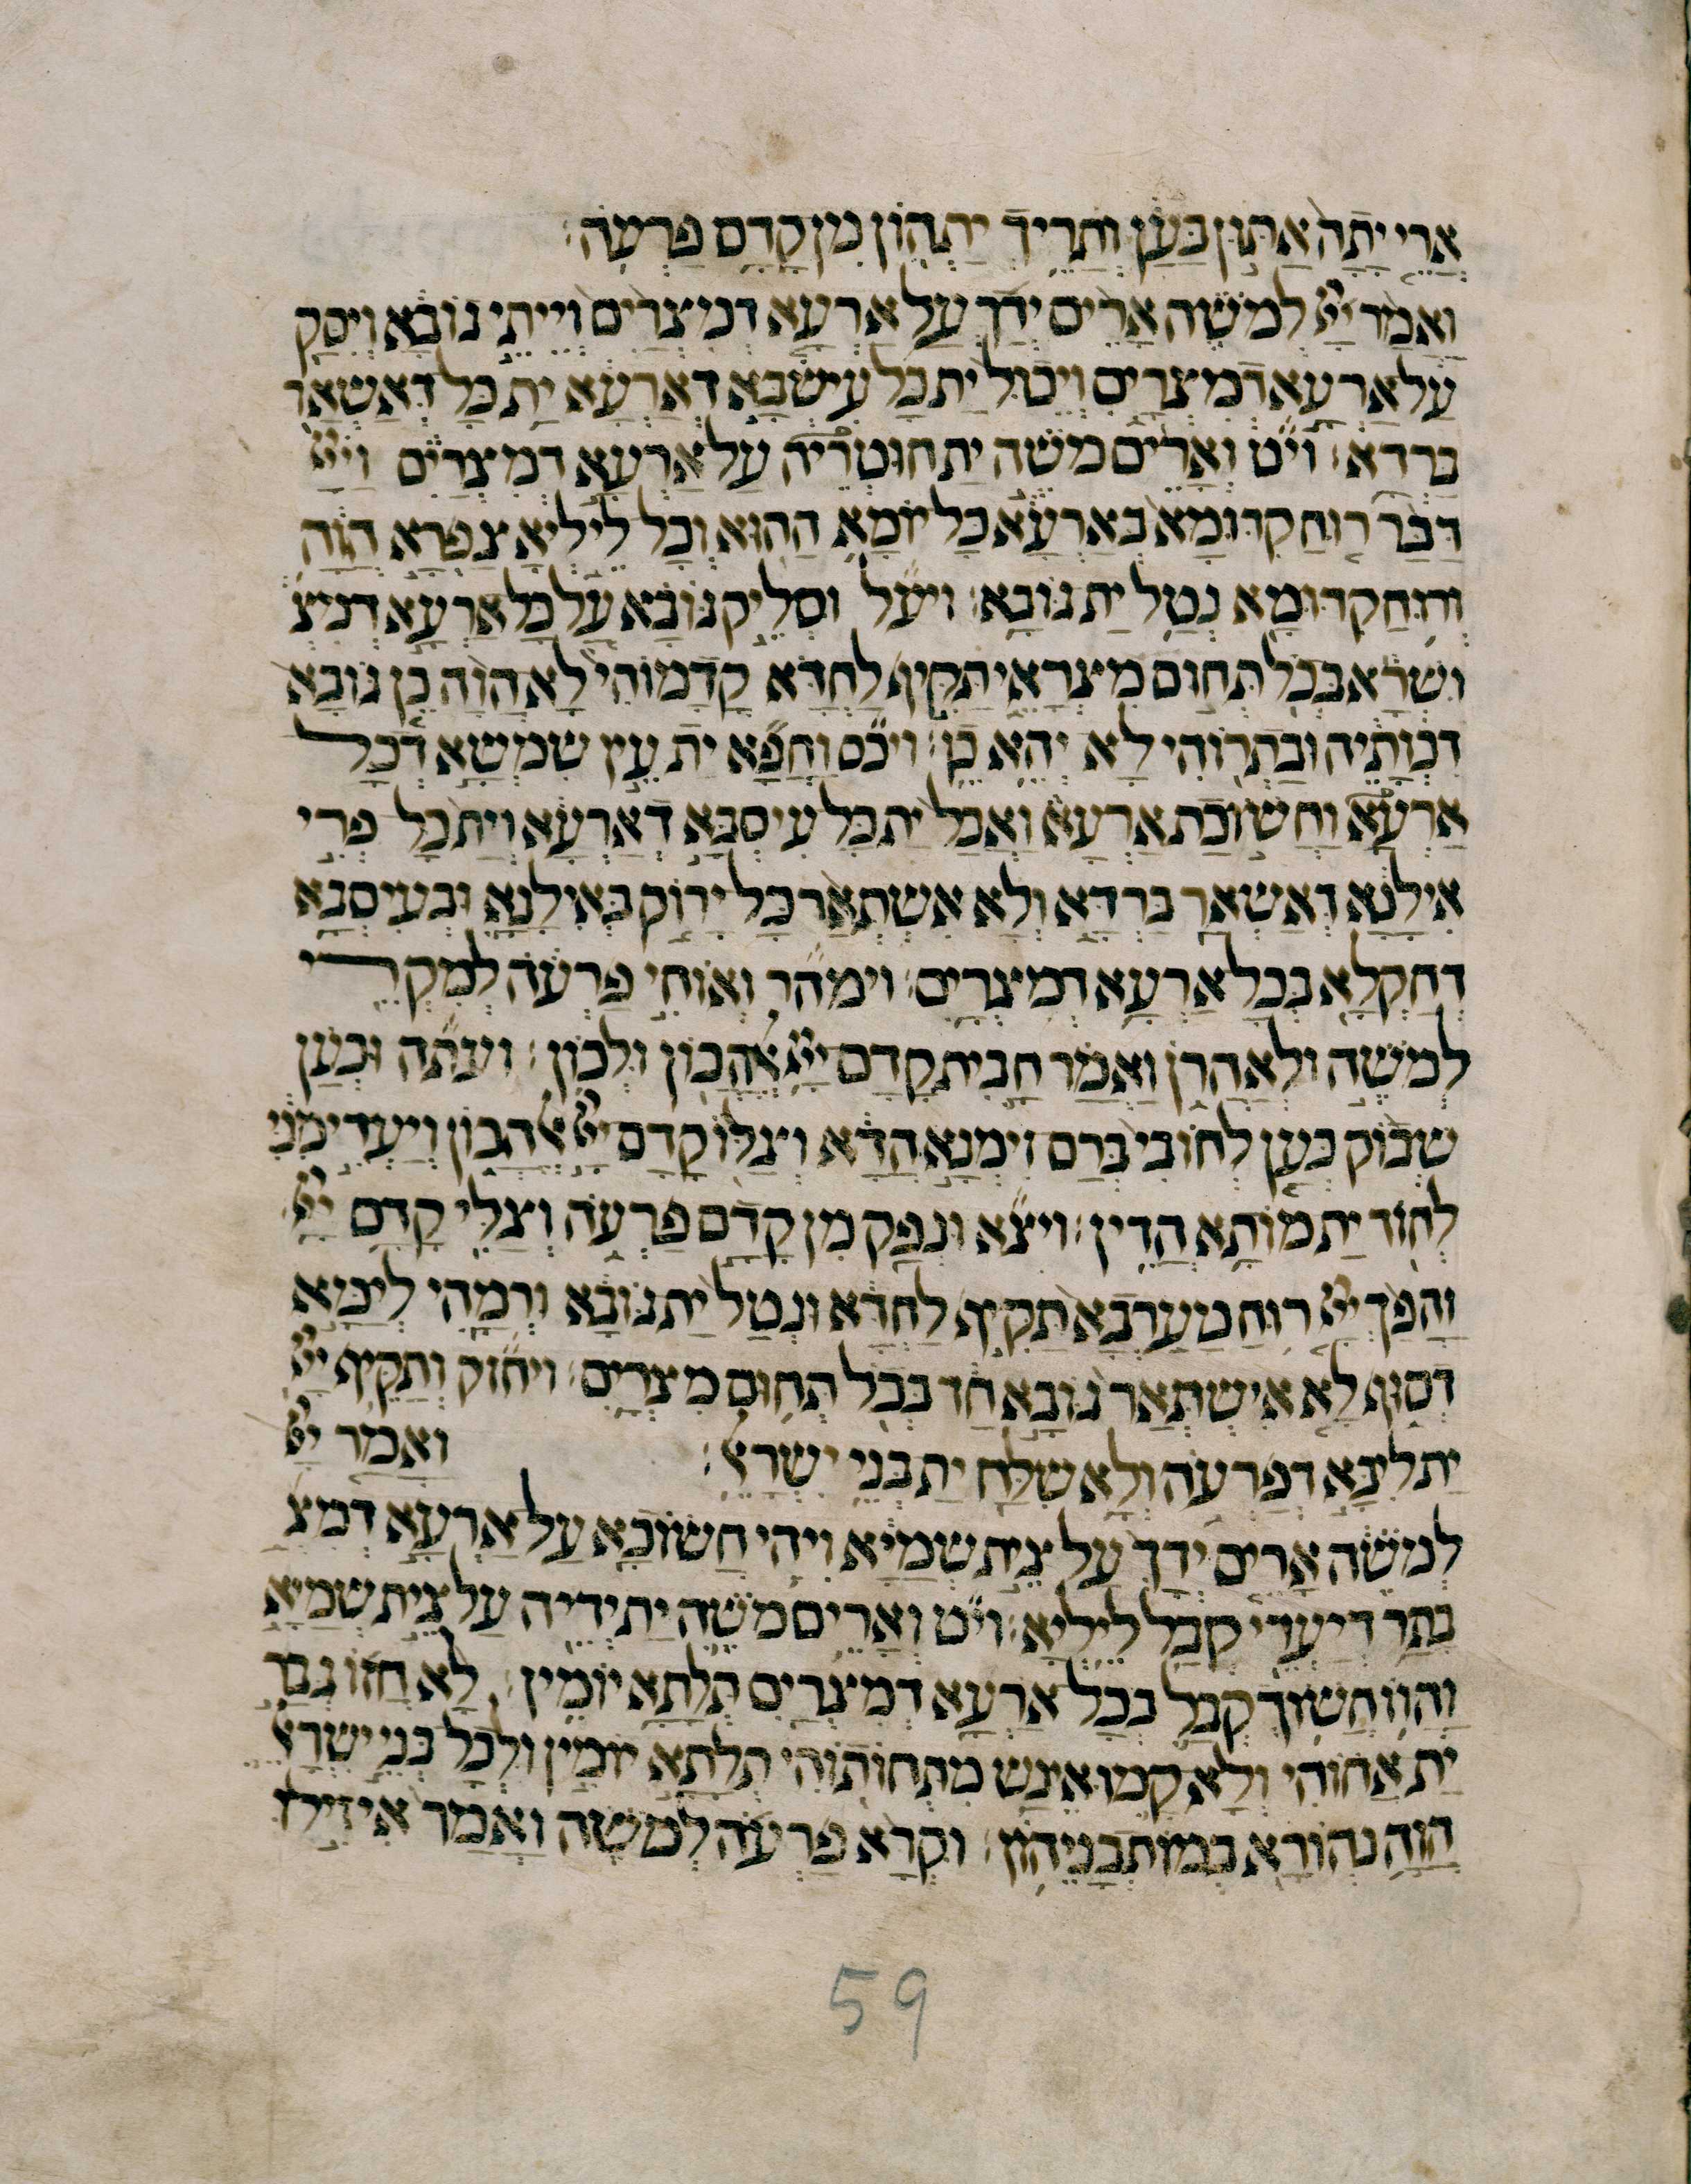 אֲרֵי יָתַהּ אַתּוּן בָּעַן וְתָרֵיךְ יָתְהוֹן מִן קֳדָם פַּרְעֹה׃
וַאֲמַר יְיָ לְמֹשֶׁה אֲרֵים יְדָךְ עַל אַרְעָא דְמִצְרַיִם וְיֵיתֵי גוֹבָא וְיִסַּק
עַל אַרְעָא דְמִצְרַיִם וְיֵטוֹל יַת כָּל עִישְׂבָּא דְאַרְעָא יַת כָּל דְּאַשְׁאַר
בַּרְדָא׃ ויט וַאֲרֵים מֹשֶׁה יַת חוּטְרֵיהּ עַל אַרְעָא דְמִצְרַיִם וַייָ
דַּבַּר רוּחַ קִדּוּמָא בְּאַרְעָא כָּל יוֹמָא הַהוּא וְכָל לֵילְיָא צַפְרָא הֲוָה
וְרוּחַ קִדּוּמָא נְטַל יַת גּוֹבָא׃ ויעל וּסְלֵיק גּוֹבָא עַל כָּל אַרְעָא דְמִצְ
וּשְׁרָא בְּכָל תְּחוּם מִצְרָאֵי תַּקִּיף לַחְדָּא קֳדָמוֹהִי לָא הֲוָה כֵן גּוֹבָא
דִּכְוָתֵיהּ וּבַתְרוֹהִי לָא יְהֵא כֵּן׃ ויכס וַחֲפָא יַת עֵין שִׁמְשָׁא דְּכָל
אַרְעָא וַחֲשׁוֹכַת אַרְעָא וַאֲכַל יַת כָּל עִיסְבָּא דְּאַרְעָא וְיַת כָּל פֵּרֵי
אִילָנָא דְּאַשְׁאַר בַּרְדָּא וְלָא אִשְׁתְּאַר כָּל יָרוֹק בְּאִילָנָא וּבְעִיסְבָּא
דְחַקְלָא בְּכָל אַרְעָא דְמִצְרַיִם׃ וימהר וְאוֹחִי פַרְעֹה לְמִקְרֵי
לְמֹשֶׁה וּלְאַהֲרֹן וַאֲמַר חָבִית קֳדָם יְיָ אֱלָהֲכוֹן וּלְכוֹן׃ ועתה וּכְעַן
שְׁבוֹק כְּעַן לְחוֹבִי בְּרַם זִימְנָא הָדָא וְצַלּוֹ קֳדָם יְיָ אֱלָהֲכוֹן וְיַעְדֵי מִנִּי
לְחוֹד יַת מוֹתָא הָדֵין׃ ויצא וּנְפַק מִן קֳדָם פַּרְעֹה וְצַלִּי קֳדָם יְיָ
וַהֲפַךְ יְיָ רוּחַ מַעַרְבָא תַּקִּיף לַחְדָּא וּנְטַל יַת גּוֹבָא וּרְמָהִי לְיַמָּא
דְסוּף לָא אִישְׁתְּאַר גּוֹבָא חַד בְּכָל תְּחוּם מִצְרַיִם׃ ויחזק וְתַקֵּיף יְיָ
יַת לִבָּא דְפַרְעֹה וְלָא שַׁלַּח יַת בְּנֵי יִשְׂרָאֵל׃ וַאֲמַר יְיָ
לְמֹשֶׁה אֲרֵים יְדָךְ עַל צֵית שְׁמַיָּא וִיהֵי חֲשׁוֹכָא עַל אַרְעָא דְמִצְ
בָּתַר דְּיַעְדֵי קְבַל לֵילְיָא׃ ויט וַאֲרֵים מֹשֶׁה יַת יְדֵיהּ עַל צֵית שְׁמַיָּא
וַהֲוָה חֲשׁוֹךְ קְבַל בְּכָל אַרְעָא דְמִצְרַיִם תְּלָתָא יוֹמִין׃ לָא חֲזוֹ גְּבַר
יַת אֲחוּהִי וְלָא קָמוּ אֱנָשׁ מִתְּחוֹתוֹהִי תְּלָתָא יוֹמִין וּלְכָל בְּנֵי יִשְׂרָאֵל
הֲוָה נְהוֹרָא בְּמוֹתְבָנֵיהוֹן׃ וּקְרָא פַרְעֹה לְמֹשֶׁה וַאֲמַר אִיזִילוּ
59